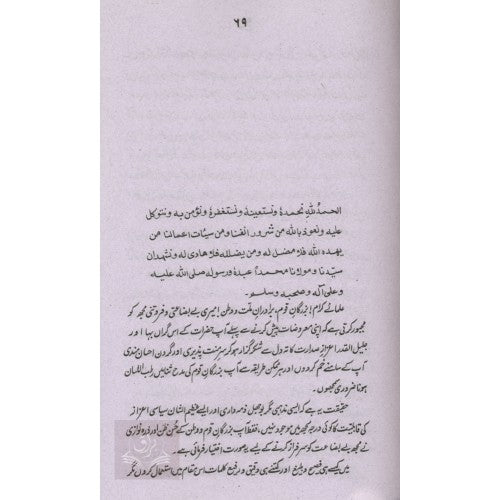 ۶۹
الحمدُ للهِ نحمدهٗ ونستعینهٗ ونستغفرهٗ ونؤمن به ونتوکل
علیه ونعوذ بالله من شرور انفسنا ومن سیئات اعمالنا من
یهده الله فلا مضل له ومن یضلله فلا هادی له ونشهد ان
سیّدنا ومولانا محمداً عبدهٗ ورسوله صلی الله علیه
وعلی آله وصحبه وسلم۔
علمائے کرام! بزرگانِ قوم، برادرانِ ملت و وطن! میری بے بضاعتی و فروتنی مجھ کو
مجبور کرتی ہے کہ اپنی معروضات پیش کرنے سے پہلے آپ حضرات کے اس گراں بہا اور
جلیل القدر اعزازِ صدارت کا تہ دل سے شکر گزار ہو کر سرِ منت پذیری اور گردن احسان مندی
آپ کے سامنے خم کر دوں اور ہر ممکن طریقہ سے آپ بزرگانِ قوم کی مدح ثنا میں رطب اللسان
ہونا ضروری سمجھوں۔
حقیقت یہ ہے کہ ایسی مذہبی مگر بوجھل ذمہ داری اور ایسے عظیم الشان سیاسی اعزاز
کی قابلیت کا کوئی درجہ مجھ میں موجود نہیں، فقط آپ بزرگانِ قوم و وطن کے حُسنِ ظن اور ذرہ نوازی
نے مجھ بے بضاعت کو سرفراز کرنے کے لیے یہ صورت اختیار فرمائی ہے۔
میں کیسے ہی فصیح و بلیغ اور کتنے ہی دقیق و رفیع کلمات اس مقام میں استعمال کروں مگر